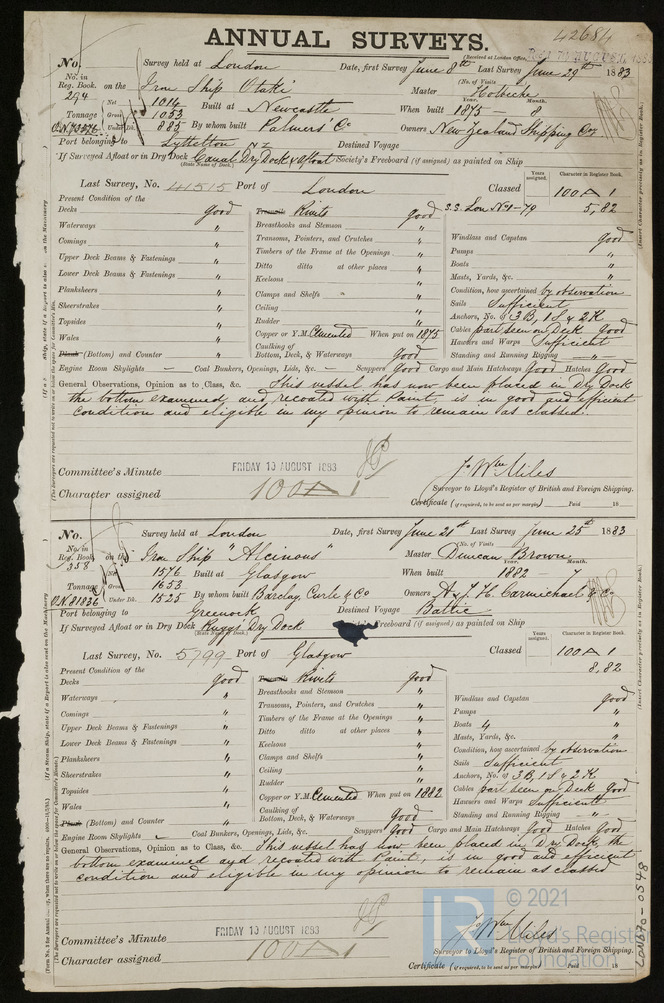 42684
ANNUAL SURVEYS.
(Received at London Office,
No. Survey held at London Date, first Survey June 8th Last Survey June 29th 1883
No. in Reg. Book 294 on the Iron Ship Otaki (No. of Visits Master Holbeche
Tonnage Net 1014 Built at Newcastle When built 1875 - 8 Month.
Gross 1053
O.N. Under Dk. 885 By whom built Palmers' Co Owners New Zealand Shipping Coy
Port belonging to Lyttelton NZ Destined Voyage
If Surveyed Afloat or in Dry Dock Canal Dry Dock & afloat Society's Freeboard (if assigned) as painted on Ship
(State Name of Dock.)
Years assigned. Character in Register Book.
Last Survey, No. 41515 Port of London Classed 100A1
S.S. Lon No1-79 5,82
Present Condition of the
Decks good
Waterways "
Comings "
Upper Deck Beams & Fastenings "
Lower Deck Beams & Fastenings "
Planksheers "
Sheerstrakes "
Topsides "
Wales "
Plank (Bottom) and Counter "
Treenails Rivits good
Breasthooks and Stemson "
Transoms, Pointers, and Crutches "
Timbers of the Frame at the Openings "
Ditto ditto at other places "
Keelsons "
Clamps and Shelfs "
Ceiling "
Rudder "
Copper or Y.M. Cemented When put on 1875
Caulking of Bottom, Deck, & Waterways Good
Windlass and Capstan good
Pumps "
Boats "
Masts, Yards, &c. "
Condition, how ascertained by observation
Sails Sufficient
Anchors, No. of 3 B, 1 S & 2 K
Cables part seen on Deck Good
Hawsers and Warps Sufficient
Standing and Running Rigging "
Engine Room Skylights - Coal Bunkers, Openings, Lids, &c. - Scuppers Good Cargo and Main Hatchways Good Hatches Good
General Observations, Opinion as to Class, &c. This vessel has now been placed in Dry Dock
the bottom examined, and recoated with Paint, is in good and efficient
condition and eligible in my opinion to remain as classed.
Committee's Minute FRIDAY 10 AUGUST 1883
Character assigned 100A1
J. Wm Miles
Surveyor to Lloyd's Register of British and Foreign Shipping.
Certificate (if required, to be sent as per margin) Paid 18
No. Survey held at London Date, first Survey June 21st Last Survey June 25th 1883
No. in Reg. Book 358 on the Iron Ship "Alcinous" (No. of Visits Master Duncan Brown
Tonnage Net 1576 Built at Glasgow When built 1882 7 Month.
Gross 1653
O.N. 81836 Under Dk. 1525 By whom built Barclay, Curle & Co Owners A & J. H. Carmichael & Co
Port belonging to Greenock Destined Voyage Baltic
If Surveyed Afloat or in Dry Dock Ruggs' Dry Dock Freeboard (if assigned) as painted on Ship
(State Name of Dock.)
Years assigned. Character in Register Book.
Last Survey, No. 5799 Port of Glasgow Classed 100A1
8,82
Present Condition of the
Decks Good
Waterways "
Comings "
Upper Deck Beams & Fastenings "
Lower Deck Beams & Fastenings "
Planksheers "
Sheerstrakes "
Topsides "
Wales "
Plank (Bottom) and Counter "
Treenails Rivits good
Breasthooks and Stemson "
Transoms, Pointers, and Crutches "
Timbers of the Frame at the Openings "
Ditto ditto at other places "
Keelsons "
Clamps and Shelfs "
Ceiling "
Rudder "
Copper or Y.M. Cemented When put on 1882
Caulking of Bottom, Deck, & Waterways Good
Windlass and Capstan good
Pumps "
Boats 4 "
Masts, Yards, &c. "
Condition, how ascertained by observation
Sails Sufficient
Anchors, No. of 3 B, 1 S & 2 K
Cables part seen on Deck Good
Hawsers and Warps Sufficient
Standing and Running Rigging "
Engine Room Skylights - Coal Bunkers, Openings, Lids, &c. Scuppers Good Cargo and Main Hatchways Good Hatches Good
General Observations, Opinion as to Class, &c. This vessel has now been placed in Dry Dock, the
bottom examined and recoated with Paint, is in good and efficient
condition and eligible in my opinion to remain as classed
Committee's Minute FRIDAY 10 AUGUST 1883
Character assigned 100A1
J. Wm Miles
Surveyor to Lloyd's Register of British and Foreign Shipping.
Certificate (if required, to be sent as per margin) Paid 18
LR © 2021
Lloyd's Register
Foundation